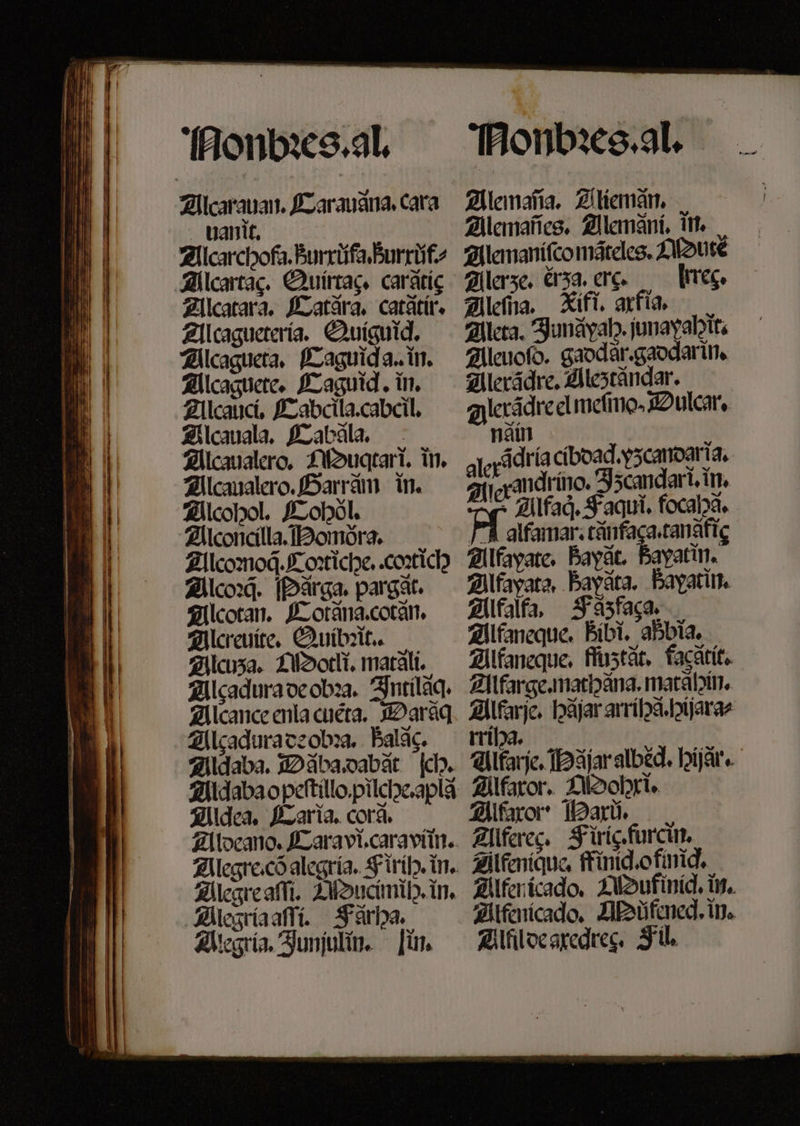 Nonbres.al.
Alcarauan. Carauána. cara
uanit.
Alcarchofa. burxúfa. burxúf.
Alcartaç. Quírtaç. carátiç
Alcatara. Catára. catátir.
Alcaguetería. Quíguid.
Alcagueta. Caguida. in.
Alcaguete. Caguid. in.
Alcauci. Cabcíla. cabcíl.
Alcauala. Cabála.
Alcaualero. Muqtarí. in.
Alcaualero. Harrám in.
Alcohol. Cohól.
Alconcilla. Homóra.
Alcornoq. Cortiche. .cortich
Alcorq. Párga. pargát.
Alcotan. Cotána. cotán.
Alcreuite. Quibrit.
Alcuza. Motlí. matáli.
Alçadura de obra. Intiláq.
Alcance en la cuéta. Daráq.
Alçadura de obra. baláç.
Aldaba. Dába. dabát [ch.
Aldaba o pestillo. pilche. aplá
Aldea. Caria. corá.
Aldeano. Caraví. caraviín.
Alegre. có alegría. Firih. in.
Alegre assi. Mucimih. in.
Alegría assi. Fárha.
Alegría. Junjulín. [in.
Nonbres.al.
Alemaña. Aliemán.
Alemañes. Alemání. in.
Alemanisco máteles. Muté
Alerze. érza. erç. [rreç.
Alesna. Xifi. axfia.
Aleta. Junáyah. junayahit.
Aleuoso. gaddár. gaddarin.
Alexádre. Aleztándar.
Alexádre el mesmo. Dulcar.
náin
Alexádría cibdad. yzcandaría.
Alexandrino. Izcandarí. in.
Alfaq. Faquí. focahá.
alfamar. tánfaça. tanáfiç
Alfayate. hayát. hayatin.
Alfayata. hayáta. hayatin.
Alfalfa. Fázfaça.
Alfaneque. hibí. ahbía.
Alfaneque. ffuztát. façátit.
Alfarge. mathána. matáhin.
Alfarje. hájar arríhá. hijara
rríha.
Alfarje. Hájar alhéd. hijár.
Alfaxor. Mohxí.
Alfaxor Haxú.
Alferez. Firíç. furcin.
Alfenique. ffinid. ofinid.
Alfenicado. Mufiníd. in.
Alfenicado. Múfened. in.
Alfil de axedrez. Fil.